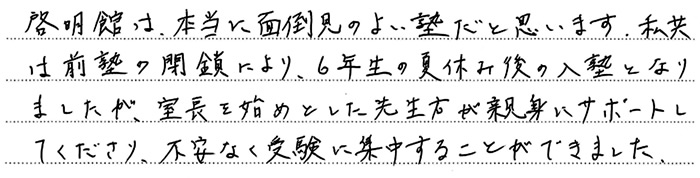 啓明館は、本当に面倒見のよい塾だと思います。私共
は前塾の閉鎖により、6年生の夏休み後の入塾となり
ましたが、室長を始めとした先生方が親身にサポートし
てくださり、不安なく受験に集中することができました。